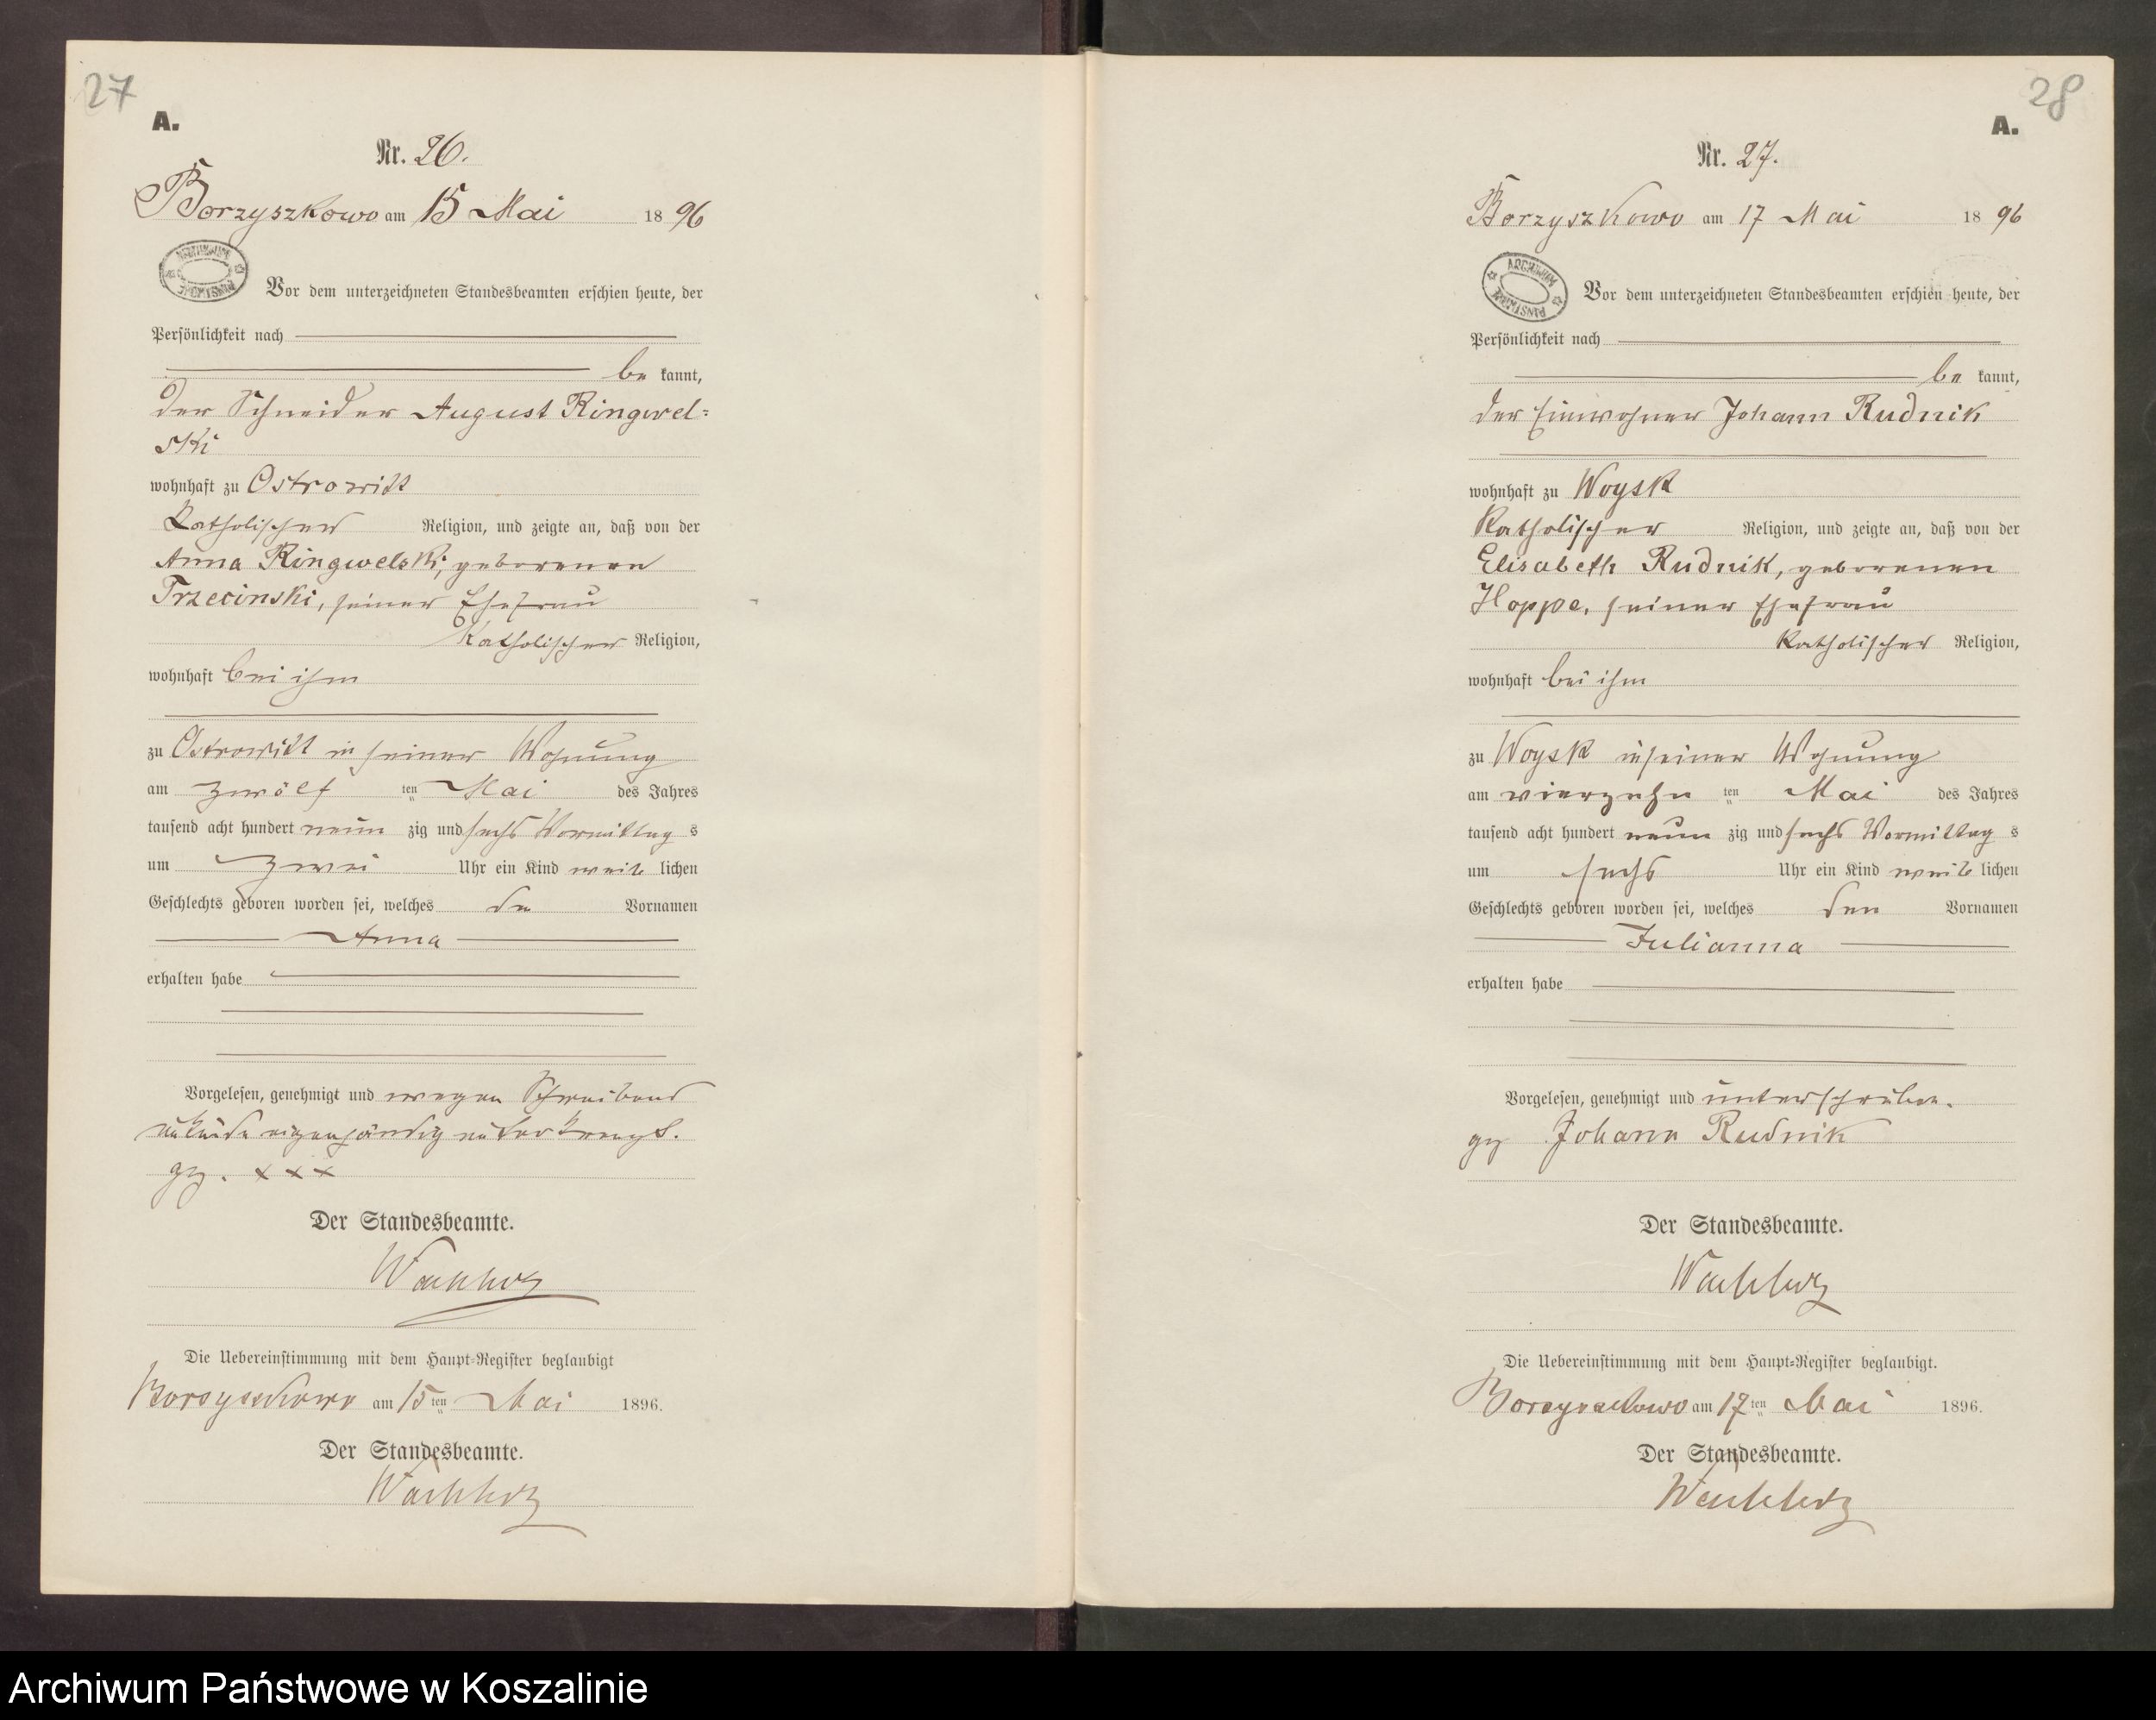 27
A.
Nr. 26.
Borzyszkowo am 15 Mai 1896
ARCHIWUM PAŃSTWOWE
Vor dem unterzeichneten Standesbeamten erschien heute, der
Persönlichkeit nach
be kannt,
der Schneider August Ringwel=
ski
wohnhaft zu Ostrowitt
Katholischer Religion, und zeigte an, daß von der
Anna Ringwelski, geborenen
Trzecinski, seiner Ehefrau
Katholischer Religion,
wohnhaft bei ihm
zu Ostrowitt in seiner Wohnung
am zwölf ten Mai des Jahres
tausend acht hundert neun zig und sechs Vormittag s
um zwei Uhr ein Kind weib lichen
Geschlechts geboren worden sei, welches de Vornamen
Anna
erhalten habe
Vorgelesen, genehmigt und wegen Schreibens
unkunde eigenhändig unterkreuzt.
gez. x x x
Der Standesbeamte.
Wachholz
Die Uebereinstimmung mit dem Haupt=Register beglaubigt
Borzyszkowo am 15ten Mai 1896.
Der Standesbeamte.
Wachholz
28
A.
Nr. 27.
Borzyszkowo am 17 Mai 1896
ARCHIWUM PAŃSTWOWE
Vor dem unterzeichneten Standesbeamten erschien heute, der
Persönlichkeit nach
be kannt,
der Einwohner Johann Rudnik
wohnhaft zu Woysk
Katholischer Religion, und zeigte an, daß von der
Elisabeth Rudnik, geborenen
Hoppe, seiner Ehefrau
Katholischer Religion,
wohnhaft bei ihm
zu Woysk in seiner Wohnung
am vierzehn ten Mai des Jahres
tausend acht hundert neun zig und sechs Vormittag s
um sechs Uhr ein Kind weib lichen
Geschlechts geboren worden sei, welches den Vornamen
Julianna
erhalten habe
Vorgelesen, genehmigt und unterschrieben.
gez Johann Rudnik
Der Standesbeamte.
Wachholz
Die Uebereinstimmung mit dem Haupt=Register beglaubigt.
Borzyszkowo am 17ten Mai 1896.
Der Standesbeamte.
Wachholz
Archiwum Państwowe w Koszalinie